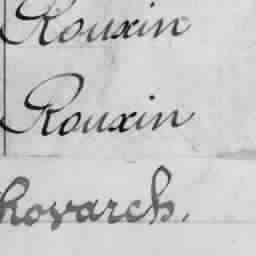 Rouxin
Rouxin
hovarch.